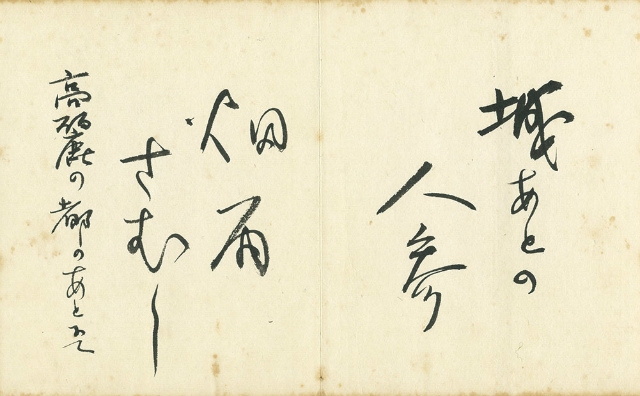 城あとの
人参
畑雨
さむし
高麗の都のあとにて